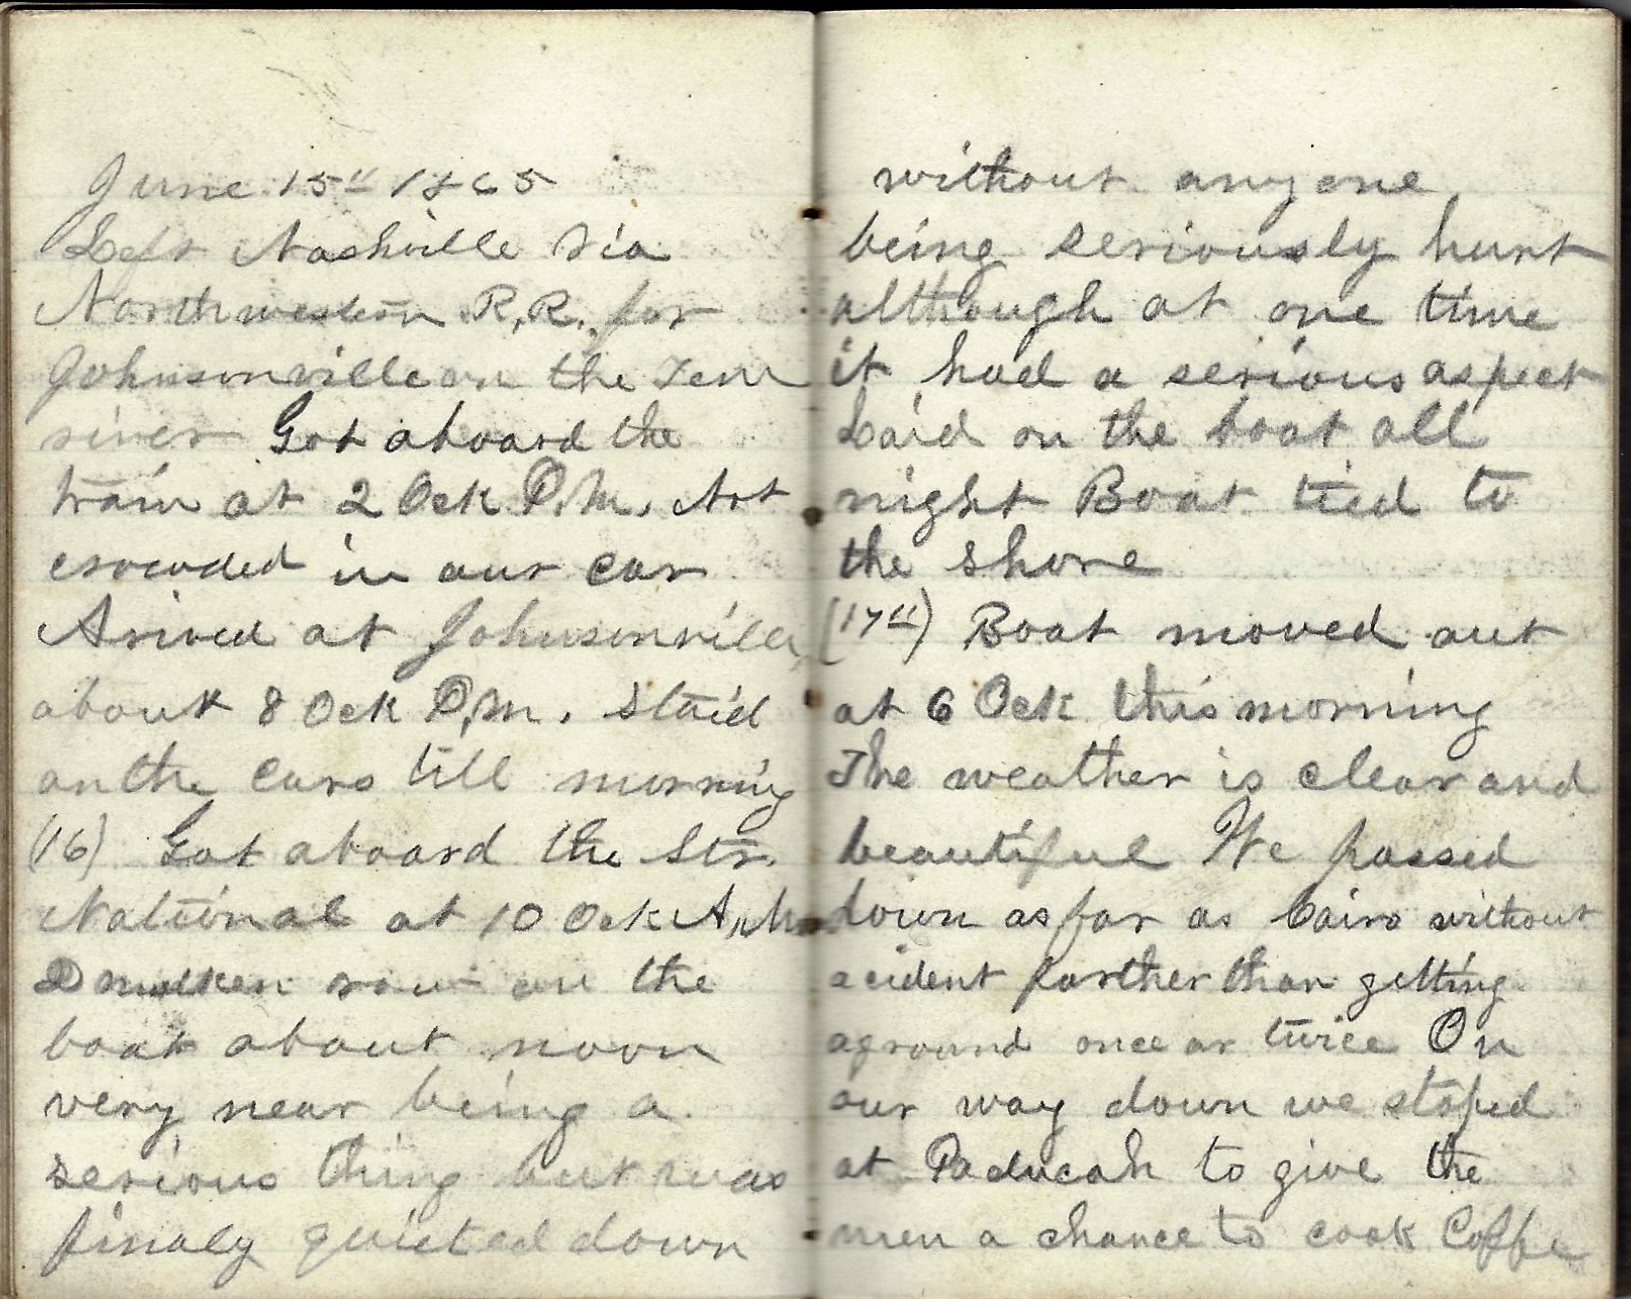 June 15" 1865
Left Nashville via
Northwestern R.R. for
Johnsonville on the Tenn
river Got aboard the
train at 2 Ock P.M. Not
crowded in our car
Arived at Johnsonville
about 8 Ock P.M. Staid
on the cars till morning
(16) Got aboard the Str.
National at 10 Ock A.M.
Drunken row on the
boat about noon
very near being a
serious thing but was
finaly quieted down
without any one
being seriously hurt
although at one time
it had a serious aspect
Laid on the boat all
night Boat tied to
the shore
(17") Boat moved out
at 6 Ock this morning
The weather is clear and
beautiful We passed
down as far as Cairo without
acident farther than getting
aground once or twice On
our way down we stoped
at Paducah to give the
men a chance to cook Coffe